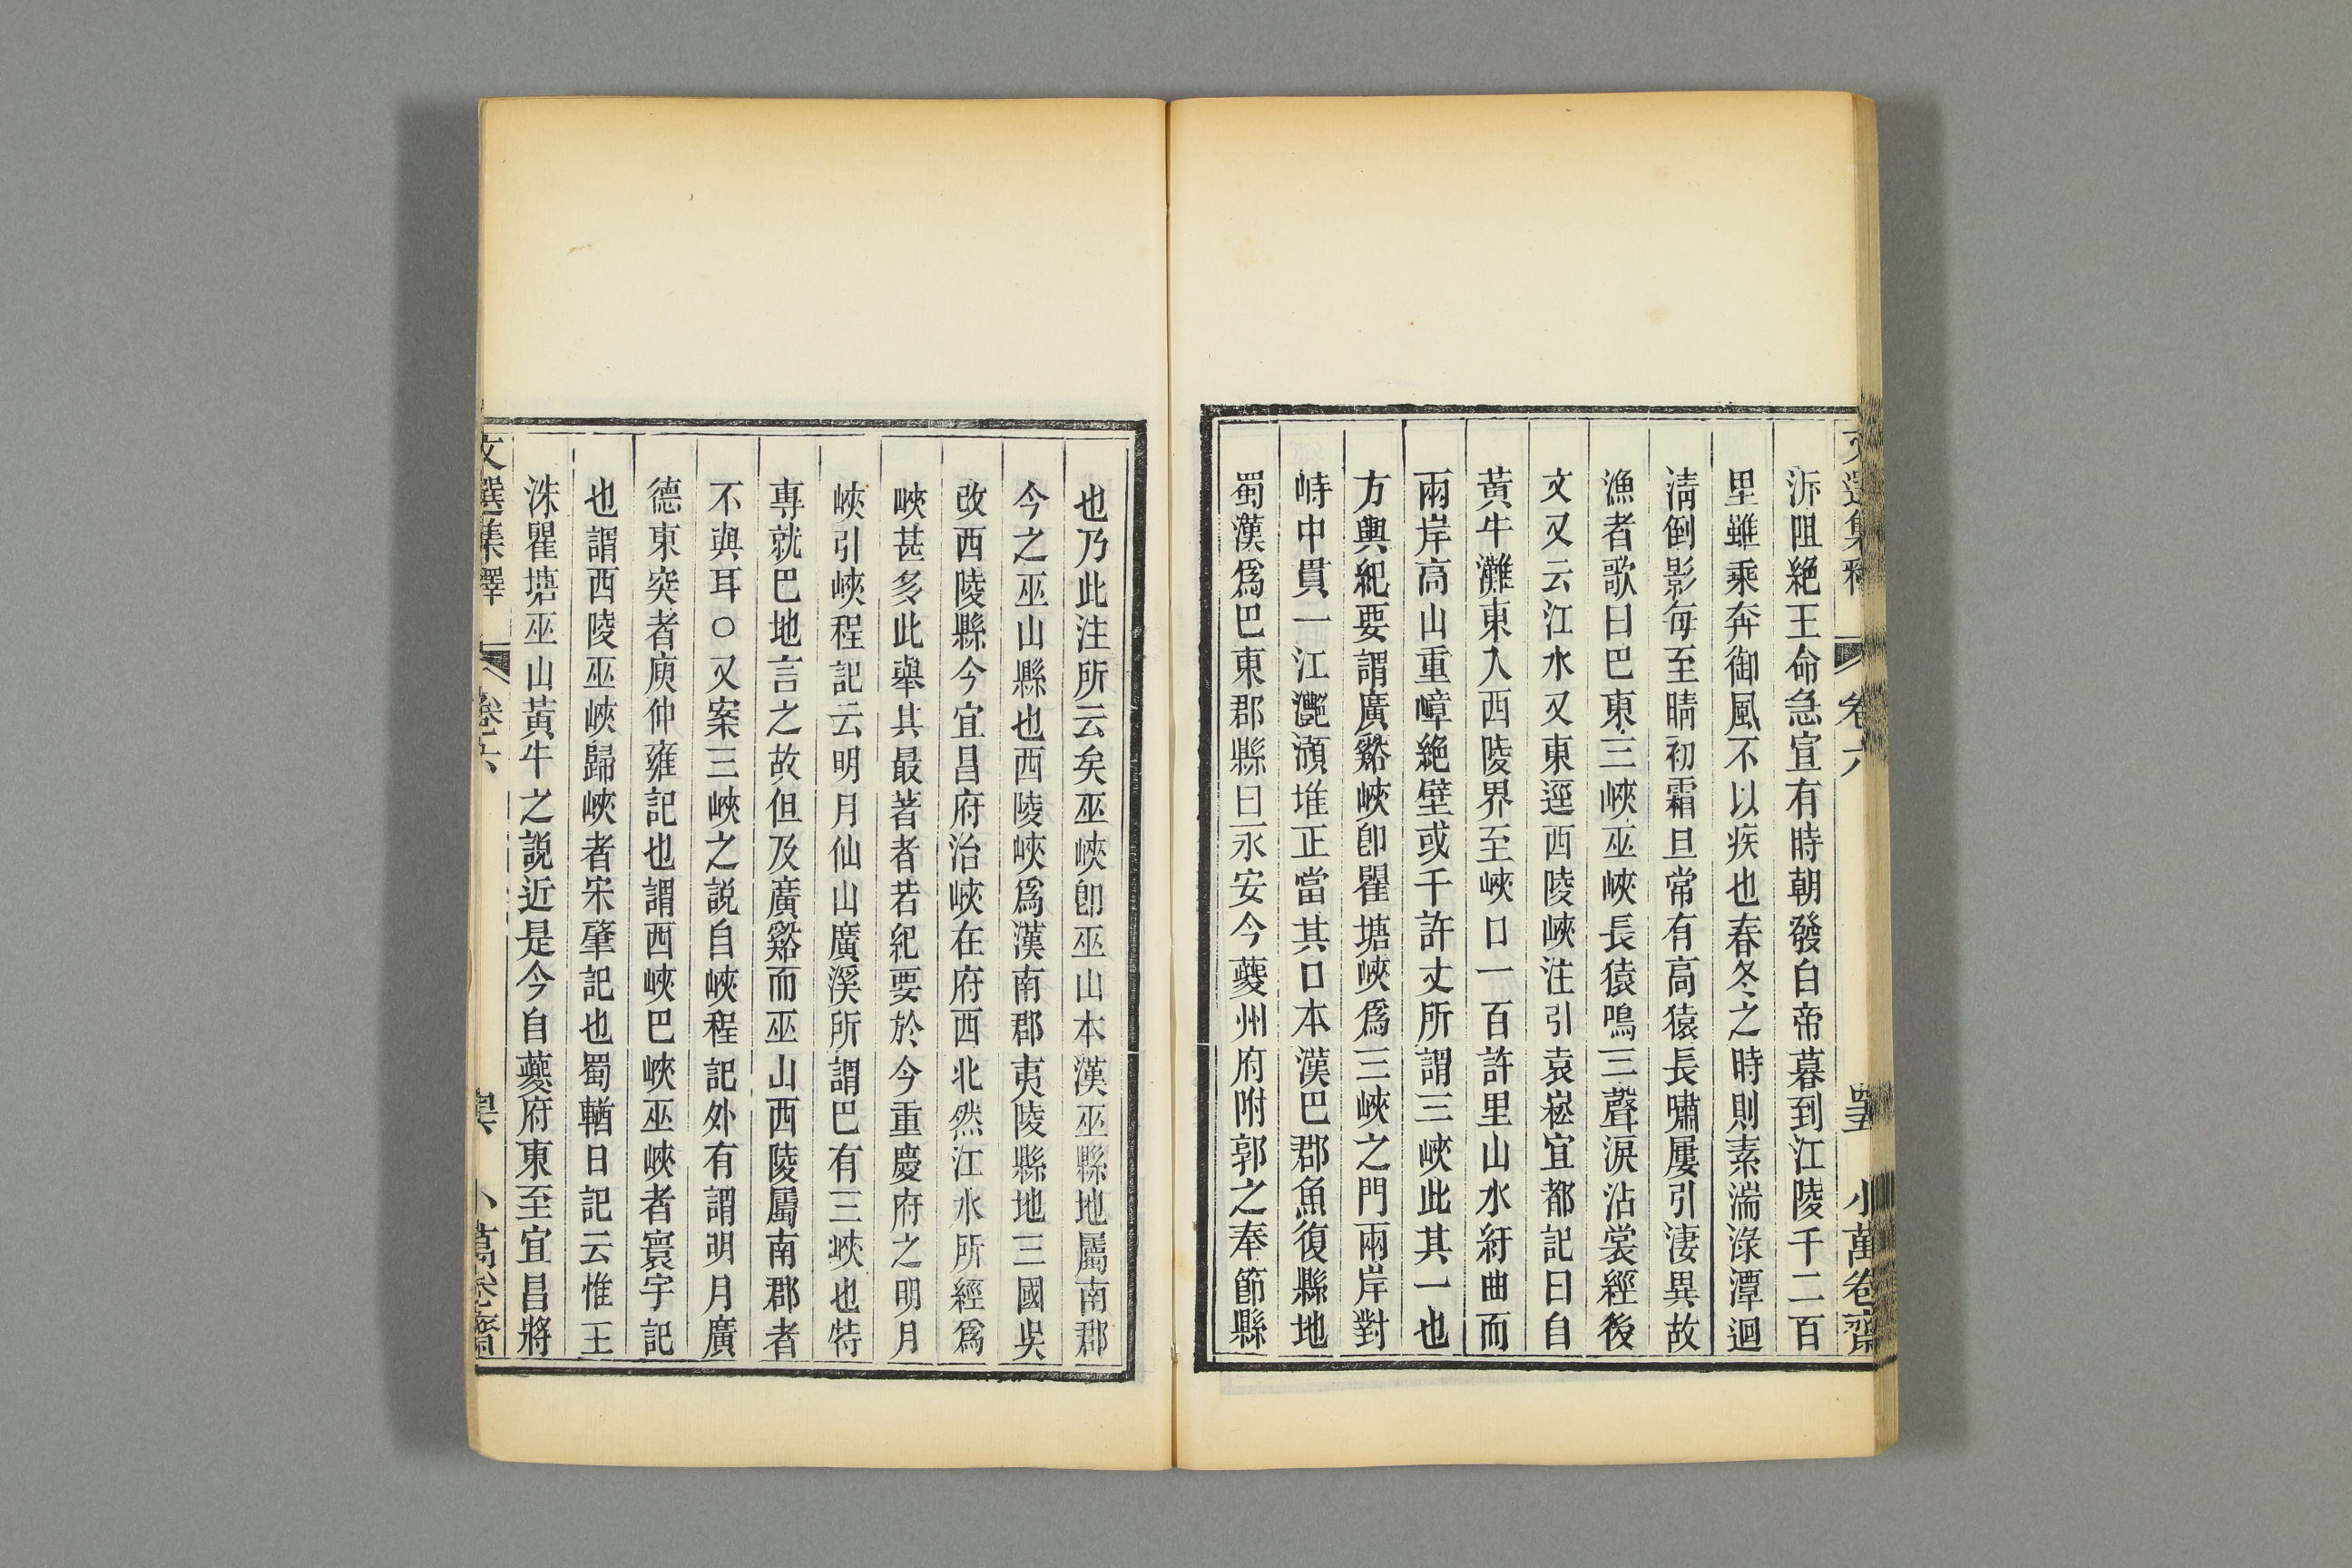 文選集釋 卷六 小萬卷齋
泝阻絶王命急宣有時朝發白帝暮到江陵千二百
里雖乘奔御風不以疾也春冬之時則素湍淥潭迴
淸倒影每至晴初霜旦常有高猿長嘯屢引淒異故
漁者歌曰巴東三峽巫峽長猿鳴三聲淚沾裳經後
文又云江水又東逕西陵峽注引袁崧宜都記曰自
黃牛灘東入西陵界至峽口一百許里山水紆曲而
兩岸高山重嶂絶壁或千許丈所謂三峽此其一也
方輿紀要謂廣谿峽卽瞿塘峽爲三峽之門兩岸對
峙中貫一江灔澦堆正當其口本漢巴郡魚復縣地
蜀漢爲巴東郡縣曰永安今夔州府附郭之奉節縣
也乃此注所云矣巫峽卽巫山本漢巫縣地屬南郡
今之巫山縣也西陵峽爲漢南郡夷陵縣地三國吳
改西陵縣今宜昌府治峽在府西北然江水所經爲
峽甚多此舉其最著者若紀要於今重慶府之明月
峽引峽程記云明月仙山廣溪所謂巴有三峽也特
專就巴地言之故但及廣谿而巫山西陵屬南郡者
不與耳○又案三峽之說自峽程記外有謂明月廣
德東突者庾仲雍記也謂西峽巴峽巫峽者寰宇記
也謂西陵巫峽歸峽者宋肇記也蜀輶日記云惟王
洙瞿塘巫山黃牛之說近是今自夔府東至宜昌將
文選集釋 卷六 小萬卷齋